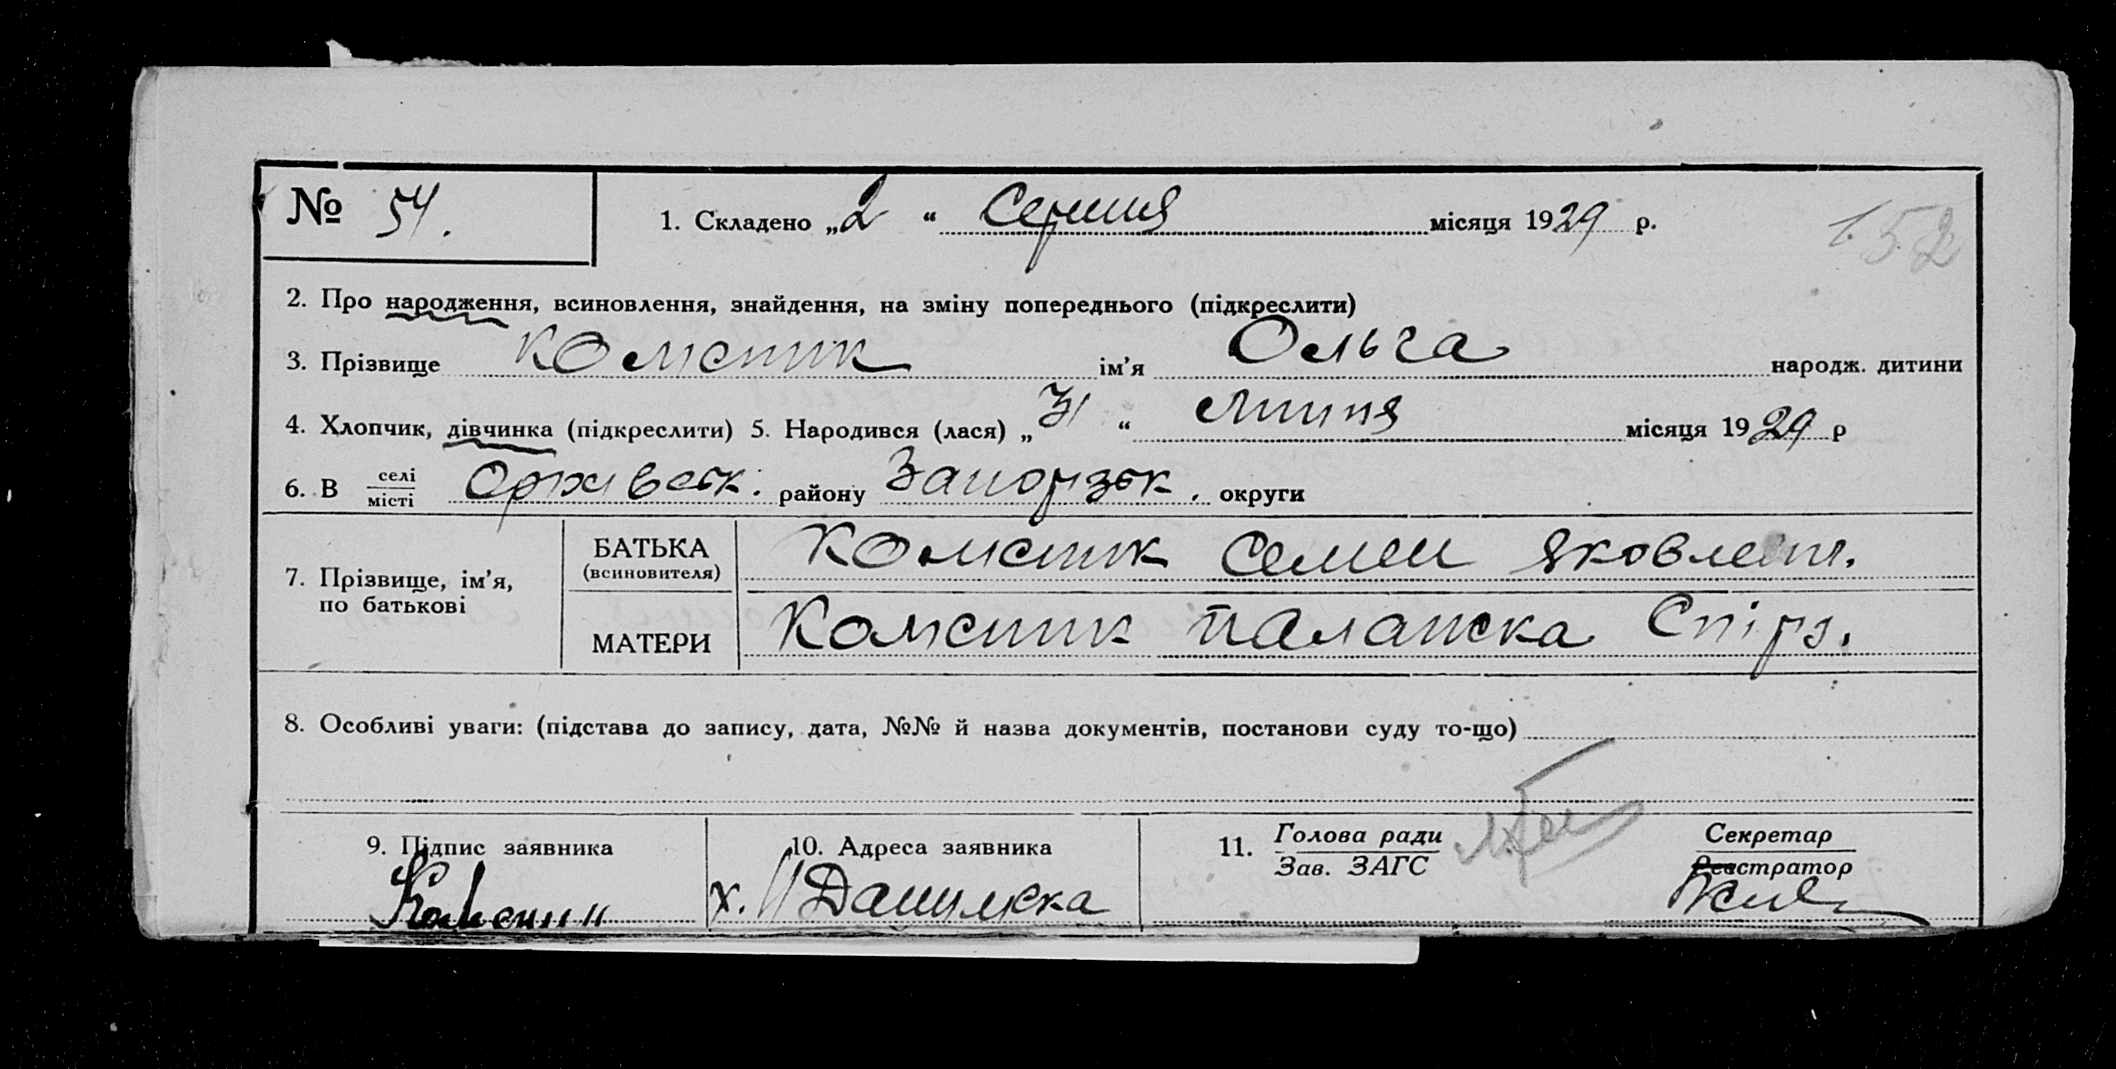 № 54.
1. Складено „2“ Серпня місяця 1929 р.
152
2. Про народження, всиновлення, знайдення, на зміну попереднього (підкреслити)
3. Прізвище Комсник ім’я Ольга народж. дитини
4. Хлопчик, дівчинка (підкреслити) 5. Народився (лася) „31“ липня місяця 1929 р
6. В селі місті Оріхівськ. району Запорізьк. округи
7. Прізвище, ім’я, по батькові
БАТЬКА (всиновителя) Семен Яковлев.
МАТЕРИ Палажка Спір.
8. Особливі уваги: (підстава до запису, дата, №№ й назва документів, постанови суду то-що)
9. Підпис заявника
10. Адреса заявника
х. Данилівка
11. Голова ради
Зав. ЗАГС
Секретар
Реєстратор